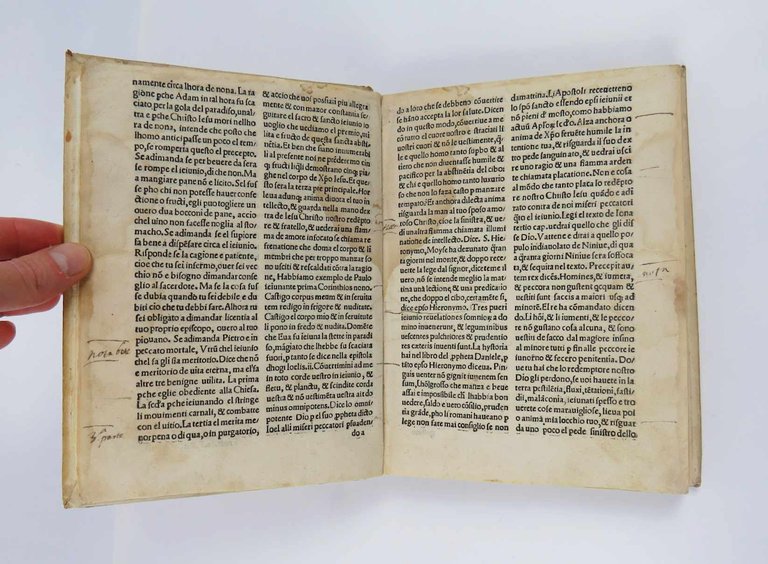 namente circa lhora de nona. La ra
gione pche Adam in tal hora fu sca
ciato per la gola del paradiso, unal/
tra e pche Christo Iesu mori nellho
ra de nona, intende che posto che
lhomo anticipasse un poco el tem/
po, se romperta questo el precepto.
Se adimanda se per beuere da sera
se rompe el ieiunio, dic che non. Ma
a mangiare pane nõ e licito. Nel suf
se pho chi non potesse hauer confe
ctione o fructi, egli puo togliere un
ouero duo bocconi de pane, accio
chel uino non facesse noglia al sto
macho. Se adimanda se si suppiero
sa bene a dispẽsare circa el ieiunio.
Risponde se la cagione e patiente,
cioe che tu sei infermo, ouer sei vec
chio nõ e bisogno dimandare con
seglio al sacerdote. Ma se la cosa fus
se dubia quando tu sei debile e du
biti cio che tu debbi fare. Alhora tu
sei obligato a dimandar licentia al
tuo proprio episcopo, ouero al tuo
piouano. Se adimanda Pietro e in
peccato mortale, Vtrũ chel ieiunio
chel fa gli sia meritorio. Dice che nõ
e meritorio de uita eterna, ma ell'ha
altre tre benigne utilita. La prima
pche eglie obediente alla Chiesa.
La scda pche ieiunando el stringe
li mouimenti carnali, & combatte
con el uitio. La tertia el merita me/
nor pena o di qua, o in purgatorio,
& accio che uoi possiati piu allegra
mente & con mazor constantia se/
guitare el sacro & sancto ieiunio io
uoglio che uediamo el premio, uti
lita e fructo de questa sancta absti/
netia. Et ben che siano innumerabi
li al presente noi ne prẽderemo cin
q; fructi liqli demostrano cinq; pia/
ghe nel corpo de Xp̃o Iesu. Et que/
sta sera la terza pte principale. Hor
leua adunq; anima diuota in alto lo
intellecto, & guarda nella mano de
stra de Iesu Christo nostro redẽpto
re & fratello, & uederai una fiama
de amore infocato ischiama te
frenatione che doma el corpo & li
membri che per troppo manzar so
no usciti & rescaldati côtra la ragio
ne, Habbiamo exemplo de Paulo
ieiunante prima Corinthios nono.
Castigo corpus meum & in seruitu
tem redigo in frigore & nuditate.
Castigo el corpo mio & in seruitute
il pono in fredo & nudita. Domẽte
che Eua fu ieiuna la stette in parada
so, mãgiato che lhebbe fu sacciata
fuori, p tanto se dice nella epistola
dhogi Ioelis. ii. Couertimini ad me
in toto corde uestro in ieiunio, &
fletu, & planctu, & scindite corda
uestra & nõ uestimẽta uestra ait do
minus omnipotens. Dice lo omni
potente Dio p el suo ppheta dicto
Ioel alli miseri peccatori psuaden/
do a
do a loro che se debbeno cõuertire
se hãno accepta la lor salute. Dicen
do in questo modo, cõuertiue a me
cõ tutto el cuore uostro e straciati li
uostri cuori & nõ le uestimẽte, q̃l/
le e quello homo tanto supbo & al
tiero che non diuentasse humile &
pacifico per la abstinẽtia del cibo,
& chi e quello homo tanto luxurio
so che non lo faza casto p mãzar
tempato. Ex anchora dilecta anima
risguarda la man al tuo sposo amo/
roso Christo, cioe la sinistra, & ue/
di unaltra fiamma chiamata illumi
natione de intellecto. Dice. S. Hie/
ronymo, Moyse ha dezunato q̃ran
ta giorni nel monte, & doppo rece
uete la lege dal signor, dicetemi di
uero, nõ se receueno megio la mat
tina una lectione & una predicatio
ne, che doppo el cibo, certamẽte si,
dice epso Hieronymo. Tres pueri
ieiunio reuelationes somniorũ a do
mino inuenerunt, & leguminibus
uescentes pulchriores & prudentio
res ceteris inuenti sunt. La hystoria
hai nel libro del ppheta Daniele, p
tito epso Hieronymo dicetua. Pin
guis uenter nõ gignit tenuem sen/
sum, lhõ grosso che manza e beue
assai e impossibile chi lhabbia bon
uedere, saldo e uero cõsilio, pruden
tia grãde, pho li romani haueano p
lege non fate mai consiglio se non
da matina. Li Apostoli receuetteno
lo spõ sancto essendo epsi ieiunii et
nõ pieni dl mosto, como habbiamo
actuũ Apl'oꝝ ii. cdo. Alza anchora o
anima de Xp̃o seruẽte humile la in
tentione tua, & risguarda il suo dex
tro pede sanguinato, & uedrai usci/
re uno ragio & una fiamma arden
te chiamata placatione. Non e cosa
al mõdo che tanto plaza lo redẽpto
re nostro Christo Iesu quãdo e adi
rato contra de noi miseri peccatori
quãto e il ieiunio. Legi el texto de Iona
ppheta, et uedrai quello che gli dis
se Dio, Vattene e dirai a quello po/
pulo indiauolato de Niniue, che di
qua a quatra giorni Niniue sera soffoca
ta, & sequita nel texto. Precepit au
tem rex dicens. Homines, & iumeta,
& peccora non gustent qcquam et
uestiti sunt saccis a maiori usq; ad
minorẽ. El re ha comandato dicen
do Li hõi, & li iumenti, & le peccor
e nõ gustano cosa alcuna, & sono
uestiti de sacco dal magiore insino
al minore tutti p fina alle peccore ie
iunorno & fecero penitentia. Do/
ue tu hai che lo redemptore nostro
Dio gli perdono, se uoi hauete in la
terra pestilẽtia, fluxi, cẽtationi, fasti/
dii, malãconia, ieiunati spesso e tro
uerete cose marauigliose, leua poi
o anima mia locchio tuo, & risguar
da uno poco el pede sinistro dello
nota bene
3ᵃ parte
nota